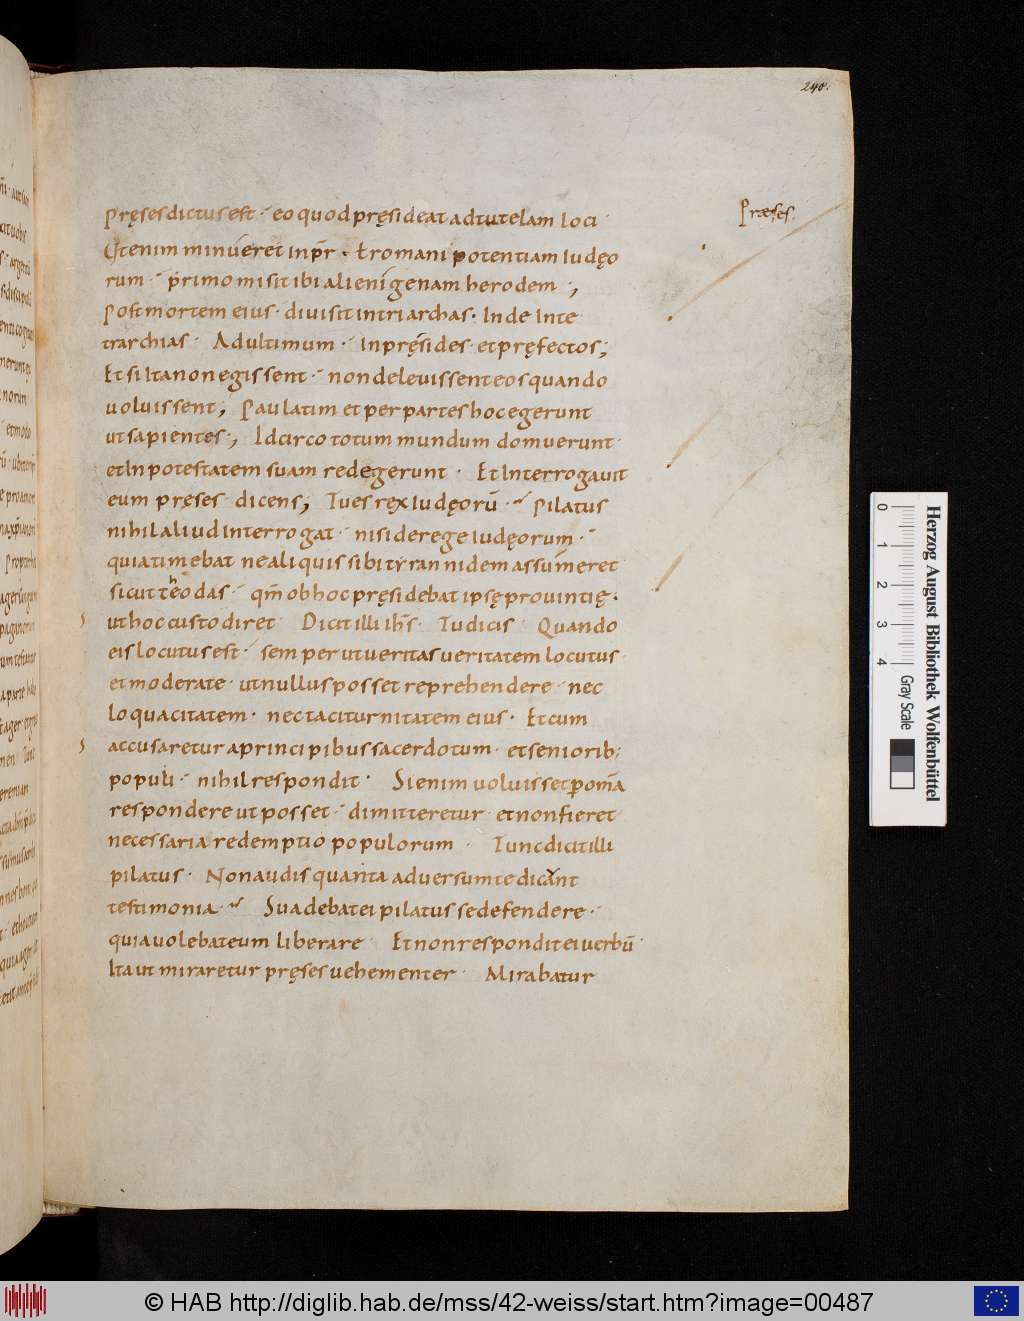 240.
Pręses dictus est · eo quod pręsideat ad tutelam loci ·
Præses.
rum · primo misit ibi alienigenam herodem ;
Post mortem eius · diuisit in triarchas · Inde Inte
trarchias · Ad ultimum · in pręsides · et pręfectos ;
Et si Ita non egissent · non deleuissent eos quando
uoluissent ; Paulatim et per partes hoc egerunt
ut sapientes · , Idcirco totum mundum domuerunt ·
et In potestatem suam redegerunt · Et Interrogauit
eum pręses dicens ; Tu es rex Iudęorū · Pilatus
nihil aliud Interrogat · nisi de rege Iudęorum ·
quia timebat ne aliquis sibi tyrannidem assumeret
sicut theodas · qm̄ ob hoc pręsidebat ipsę prouintię ·
ut hoc custodiret · Dicit illi ih̄s · Tu dicis · Quando
eis locutus est · semper ut ueritas ueritatem locutus ·
et moderate · ut nullus posset reprehendere · nec
loquacitatem · nec taciturnitatem eius · Et cum
accusaretur a principibus sacerdotum · et seniorib;
populi · nihil respondit · Si enim uoluisset p omīa
respondere ut posset · dimitteretur · et non fieret
necessaria redemptio populorum · Tunc dicit illi
pilatus · Non audis quanta aduersum te dicant
testimonia · Suadebat ei pilatus se defendere ·
quia uolebat eum liberare · Et non respondit ei uerbū ·
Ita ut miraretur pręses uehementer · Mirabatur
0 1 2 3 4
Gray Scale
Herzog August Bibliothek Wolfenbüttel
© HAB http://diglib.hab.de/mss/42-weiss/start.htm?image=00487